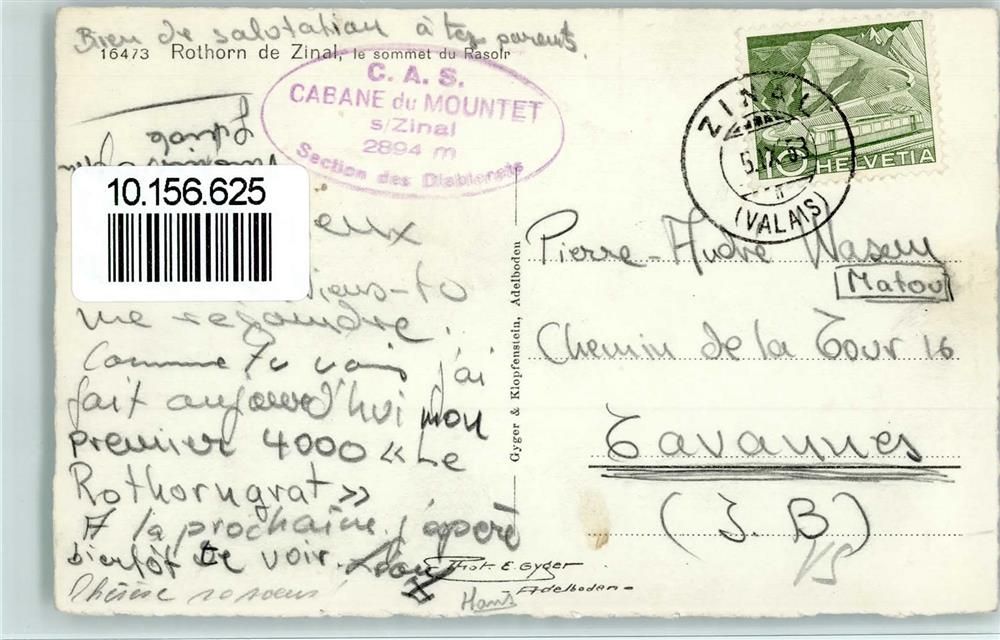 Bien de salutation à tes parents.
16473 Rothorn de Zinal, le sommet du Rasoir
C. A. S.
CABANE du MOUNTET
s/Zinal
2894 m
Section des Diablerets
ZINAL
(VALAIS)
10 HELVETIA
10.156.625
Viens-to
me rejoindre.
Comme tu vois j'ai
fait aujourd'hui mon
premier 4000 «Le
Rothorngrat»
A la prochaine, j'aperè
bientôt te voir.
Thérèse
Gyger & Klopfenstein, Adelboden
Pierre-André Wasem
Matou
Chemin de la Tour 16
Tavannes
(J. B)
Phot. E. Gyger
Adelboden
Hans